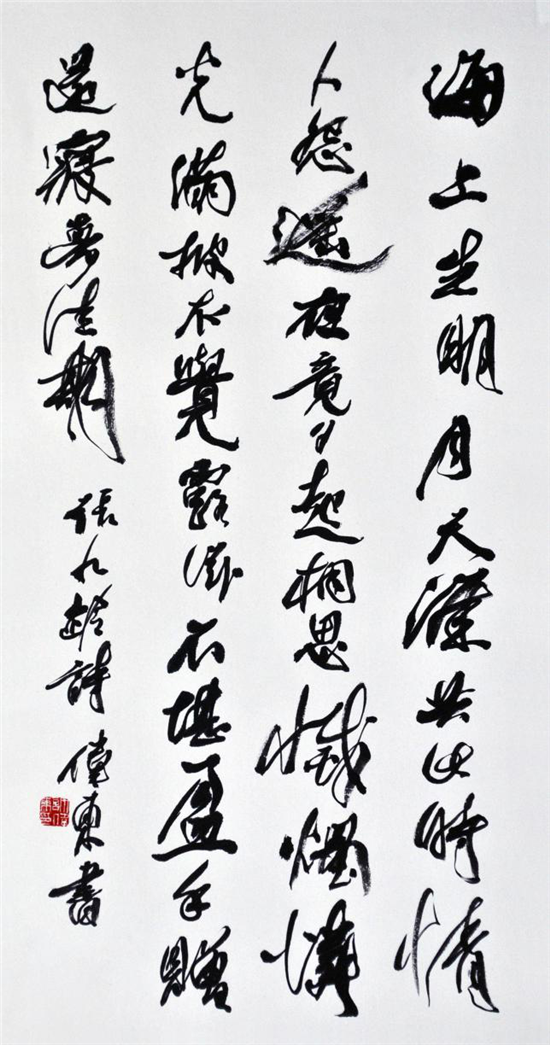 海上生明月天涯共此時情
人怨遙夜竟夕起相思滅燭憐
光滿披衣覺露滋不堪盈手贈
還寢夢佳期
張九齡詩 東書